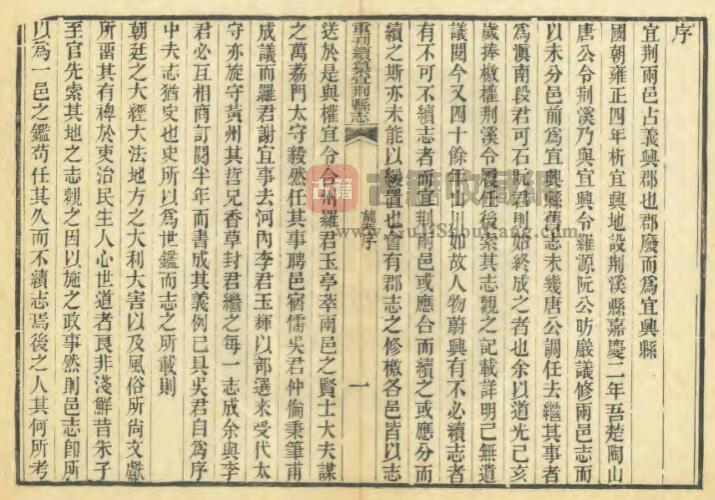 序
宜荆兩邑占義興郡也郡廢而爲宜興縣
國朝雍正四年析宜興地設荆溪縣嘉慶二年吾楚陶山
唐公令荆溪乃與宜興令羅源阮公昉嚴議修兩邑志而
以未分邑前爲宜興縣舊志未幾唐公調任去繼其事者
爲滇南段君可石阮君則始終成之者也余以道光己亥
歲捧檄權荆溪令履任後索其志觀之記載詳明已無遺
議閱今又四十餘年山川如故人物蔚興有不必續志者
有不可不續志者而宜荆兩邑或應合而續之或應分而
續之斯亦未能以緩置也會有郡志之修檄各邑皆以志
重刊續纂宜荆縣志
熊序
一
送於是與權宜令合州羅君玉亭萃兩邑之賢士大夫謀
之萬荔門太守毅然任其事聘邑宿儒吳君仲倫秉筆甫
成議而羅君謝宜事去河內李君玉輝以部選來受代太
守亦旋守黃州其哲兄香草封君繼之每一志成余與李
君必互相商訂閱半年而書成其義例已具吳君自爲序
中夫志猶史也史所以爲世鑑而志之所載則
朝廷之大經大法地方之大利大害以及風俗所尚文獻
所畱其有裨於吏治民生人心世道者良非淺鮮昔朱子
至官先索其地之志觀之因以施之政事然則邑志卽所
以爲一邑之鑑苟任其久而不續志焉後之人其何所考
古籍
www.GuJiShouCang.com